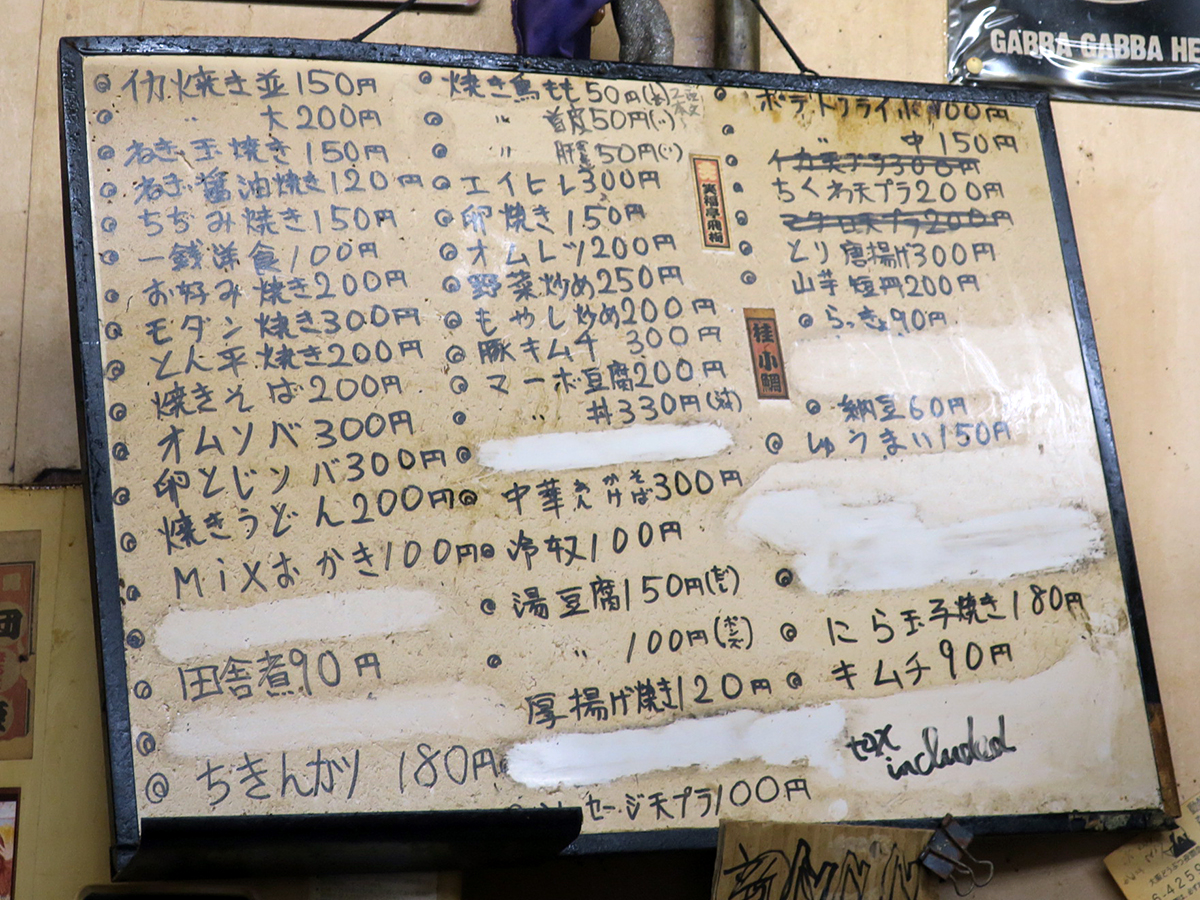 イカ焼き並150円
〃 大200円
ねぎ玉焼き150円
ねぎ醤油焼き120円
ちぢみ焼き150円
一銭洋食100円
お好み焼き200円
モダン焼き300円
とん平焼き200円
焼きそば200円
オムソバ300円
卵とじソバ300円
焼きうどん200円
MiXおかき100円
田舎煮90円
ちきんカツ 180円
焼き鳥もも50円
〃 首皮50円(〃)
〃 肝50円(〃)
エイヒレ300円
卵焼き150円
オムレツ200円
野菜炒め250円
もやし炒め200円
豚キムチ 300円
マーボ豆腐200円
〃 丼330円
中華 かけそば300円
冷奴100円
湯豆腐150円(だし)
〃 100円(ポンズ)
厚揚げ焼き120円
セージ天プラ100円
ポテトフライ小100円
〃 中150円
イカ天プラ300円
ちくわ天プラ200円
マグロ天プラ200円
とり唐揚げ300円
山芋短冊200円
らっきょ90円
納豆60円
しゅうまい150円
にら玉子焼き180円
キムチ90円
tax
included
笑福亭飛梅
桂小鯛
GABBA GABBA HE